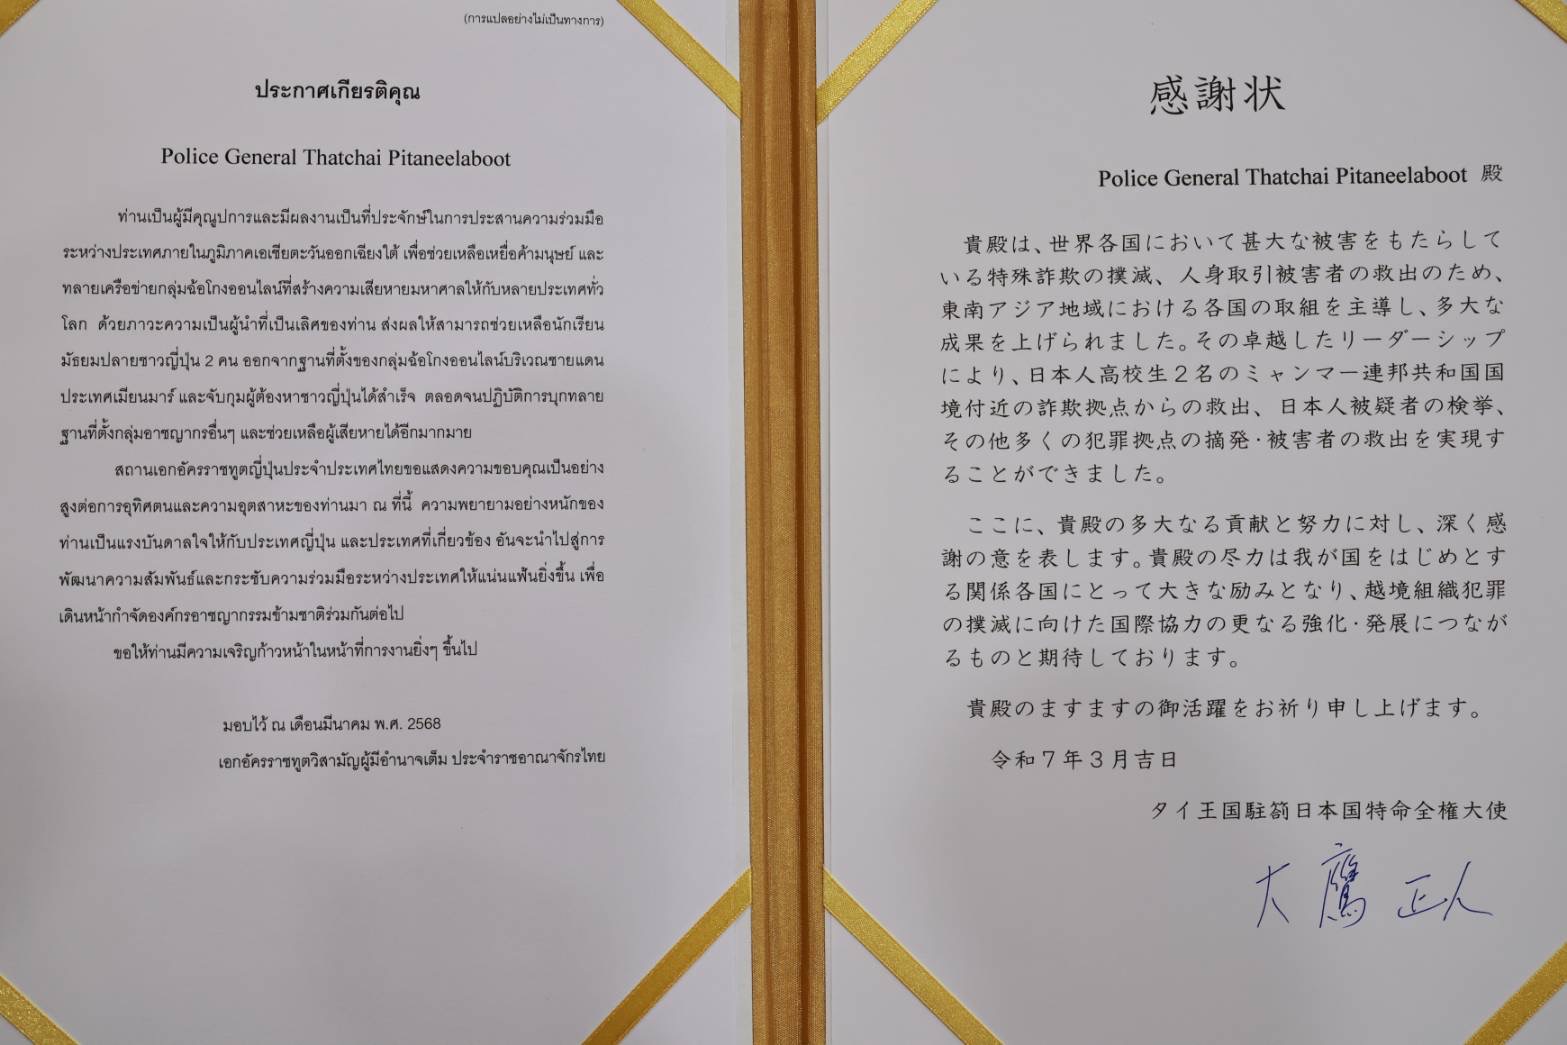 (การแปลอย่างไม่เป็นทางการ)
ประกาศเกียรติคุณ
Police General Thatchai Pitaneelaboot
ท่านเป็นผู้มีคุณูปการและมีผลงานเป็นที่ประจักษ์ในการประสานความร่วมมือ
ระหว่างประเทศภายในภูมิภาคเอเชียตะวันออกเฉียงใต้ เพื่อช่วยเหลือเหยื่อค้ามนุษย์ และ
ทลายเครือข่ายกลุ่มฉ้อโกงออนไลน์ที่สร้างความเสียหายมหาศาลให้กับหลายประเทศทั่ว
โลก ด้วยภาวะความเป็นผู้นำที่เป็นเลิศของท่าน ส่งผลให้สามารถช่วยเหลือนักเรียน
มัธยมปลายชาวญี่ปุ่น 2 คน ออกจากฐานที่ตั้งของกลุ่มฉ้อโกงออนไลน์บริเวณชายแดน
ประเทศเมียนมาร์ และจับกุมผู้ต้องหาชาวญี่ปุ่นได้สำเร็จ ตลอดจนปฏิบัติการบุกทลาย
ฐานที่ตั้งกลุ่มอาชญากรอื่นๆ และช่วยเหลือผู้เสียหายได้อีกมากมาย
สถานเอกอัครราชทูตญี่ปุ่นประจำประเทศไทยขอแสดงความขอบคุณเป็นอย่าง
สูงต่อการอุทิศตนและความอุตสาหะของท่านมา ณ ที่นี้ ความพยายามอย่างหนักของ
ท่านเป็นแรงบันดาลใจให้กับประเทศญี่ปุ่น และประเทศที่เกี่ยวข้อง อันจะนำไปสู่การ
พัฒนาความสัมพันธ์และกระชับความร่วมมือระหว่างประเทศให้แน่นแฟ้นยิ่งขึ้น เพื่อ
เดินหน้ากำจัดองค์กรอาชญากรรมข้ามชาติร่วมกันต่อไป
ขอให้ท่านมีความเจริญก้าวหน้าในหน้าที่การงานยิ่งๆ ขึ้นไป
มอบไว้ ณ เดือนมีนาคม พ.ศ. 2568
เอกอัครราชทูตวิสามัญผู้มีอำนาจเต็ม ประจำราชอาณาจักรไทย
感謝状
Police General Thatchai Pitaneelaboot 殿
貴殿は、世界各国において甚大な被害をもたらして
いる特殊詐欺の撲滅、人身取引被害者の救出のため、
東南アジア地域における各国の取組を主導し、多大な
成果を上げられました。その卓越したリーダーシップ
により、日本人高校生2名のミャンマー連邦共和国国
境付近の詐欺拠点からの救出、日本人被疑者の検挙、
その他多くの犯罪拠点の摘発・被害者の救出を実現す
ることができました。
ここに、貴殿の多大なる貢献と努力に対し、深く感
謝の意を表します。貴殿の尽力は我が国をはじめとす
る関係各国にとって大きな励みとなり、越境組織犯罪
の撲滅に向けた国際協力の更なる強化・発展につなが
るものと期待しております。
貴殿のますますの御活躍をお祈り申し上げます。
令和7年3月吉日
タイ王国駐箚日本国特命全権大使
大鷹 正人